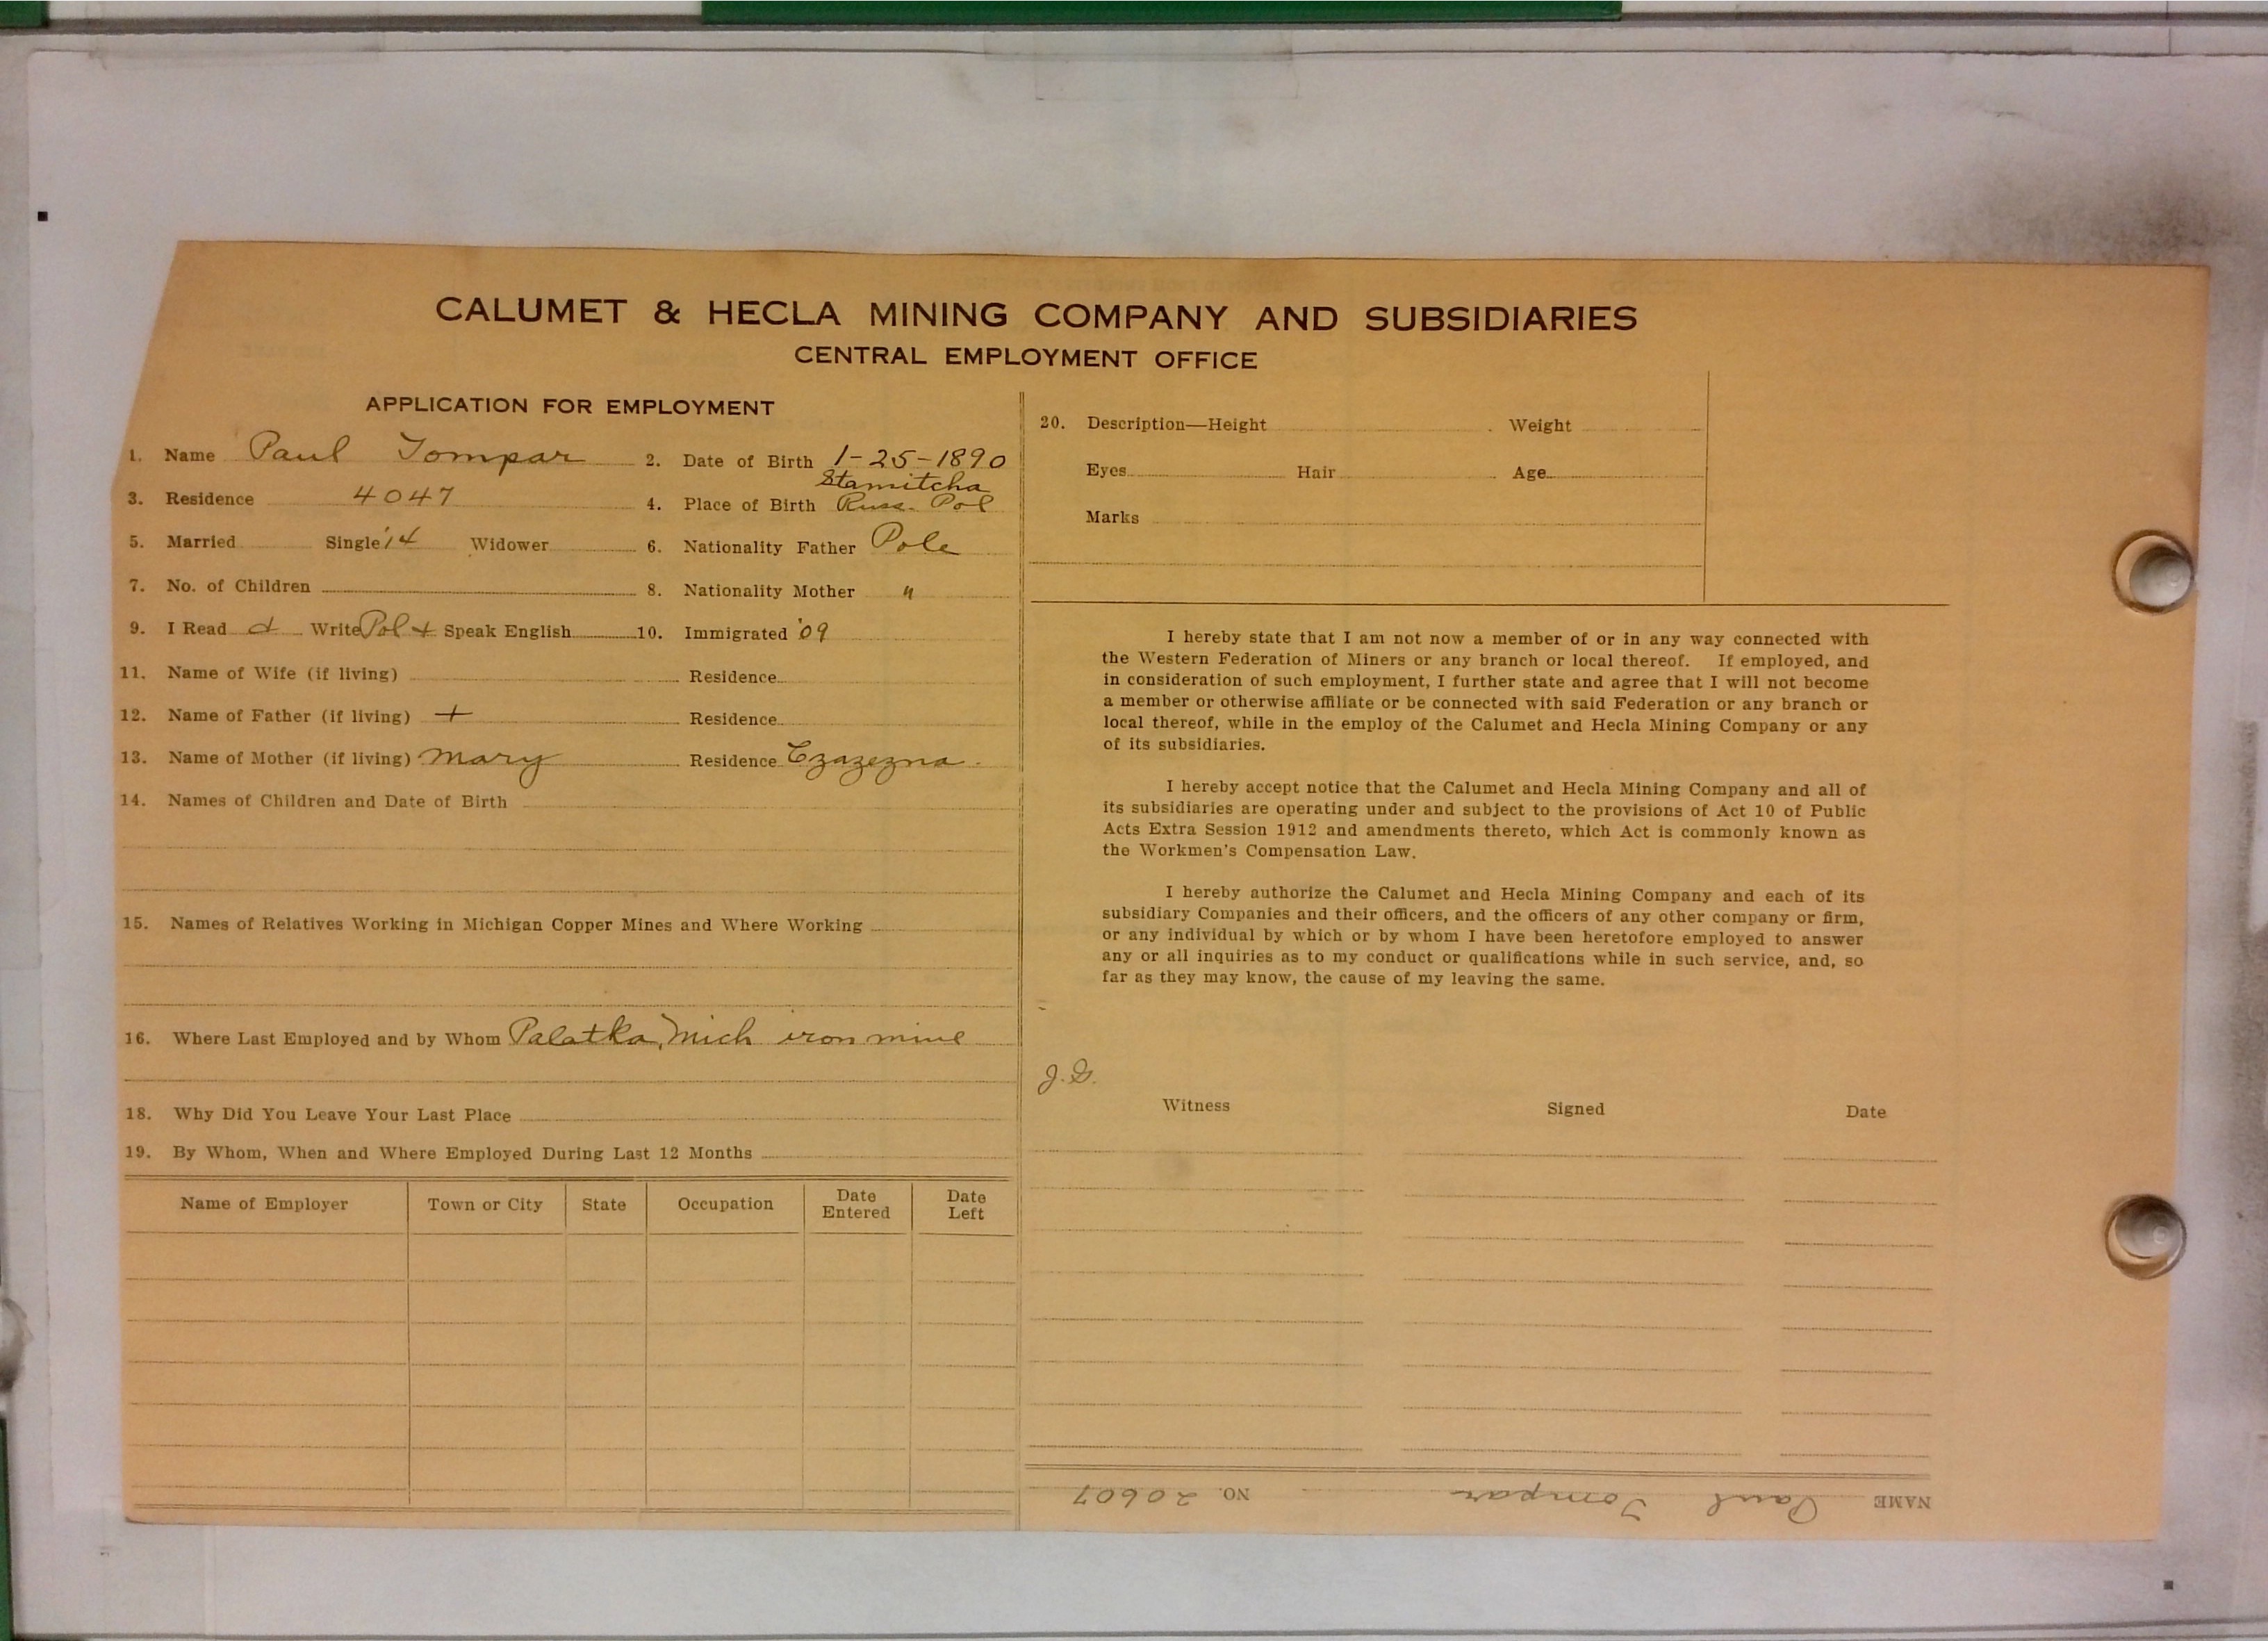 CALUMET & HECLA MINING COMPANY AND SUBSIDIARIES
CENTRAL EMPLOYMENT OFFICE
APPLICATION FOR EMPLOYMENT
1. Name Paul Tompar 2. Date of Birth 1-25-1890
Stamitcha
3. Residence 4047 4. Place of Birth Russ. Pol
5. Married Single '14 Widower 6. Nationality Father Pole
7. No. of Children 8. Nationality Mother "
9. I Read & Write Pol + Speak English 10. Immigrated '09
11. Name of Wife (if living) Residence
12. Name of Father (if living) + Residence
13. Name of Mother (if living) Mary Residence Czazezna.
14. Names of Children and Date of Birth
15. Names of Relatives Working in Michigan Copper Mines and Where Working
16. Where Last Employed and by Whom Palatka, Mich iron mine
18. Why Did You Leave Your Last Place
19. By Whom, When and Where Employed During Last 12 Months
Name of Employer Town or City State Occupation Date Entered Date Left
20. Description—Height Weight
Eyes Hair Age
Marks
I hereby state that I am not now a member of or in any way connected with
the Western Federation of Miners or any branch or local thereof. If employed, and
in consideration of such employment, I further state and agree that I will not become
a member or otherwise affiliate or be connected with said Federation or any branch or
local thereof, while in the employ of the Calumet and Hecla Mining Company or any
of its subsidiaries.
I hereby accept notice that the Calumet and Hecla Mining Company and all of
its subsidiaries are operating under and subject to the provisions of Act 10 of Public
Acts Extra Session 1912 and amendments thereto, which Act is commonly known as
the Workmen's Compensation Law.
I hereby authorize the Calumet and Hecla Mining Company and each of its
subsidiary Companies and their officers, and the officers of any other company or firm,
or any individual by which or by whom I have been heretofore employed to answer
any or all inquiries as to my conduct or qualifications while in such service, and, so
far as they may know, the cause of my leaving the same.
J.G.
Witness Signed Date
NAME Paul Tompar NO. 20607